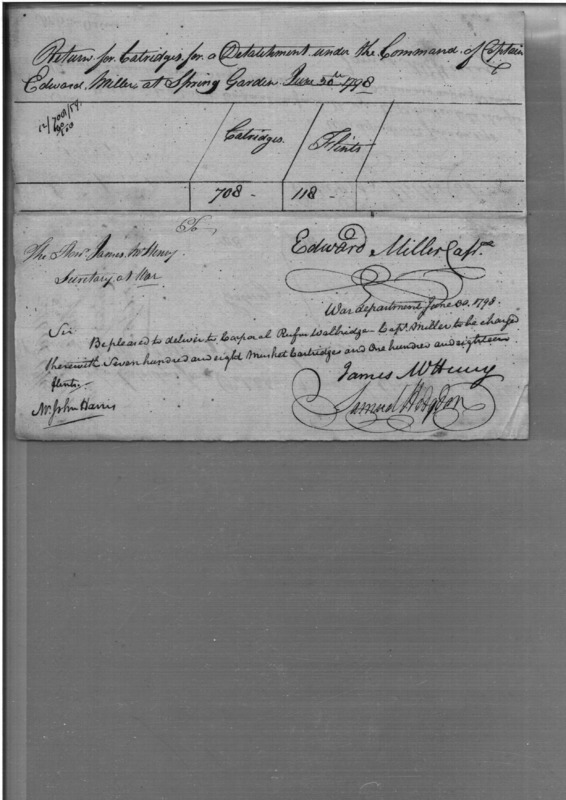 Return for Catridges for a Detatchment under the Command of Captain
Edward Miller at Spring Garden June 30th 1798
12/708/59
60
Catridges. Flints
708 - 118 -
To
The Honl. James McHenry
Secretary at War
Edward Miller Capt.
War department June 30. 1798.
Sir
Be pleased to deliver to Corporal Rufus Walbridge Capt. Miller to be charged
therewith Seven hundred and eight Musket Cartridges and One hundred and eighteen
flints.
James McHenry
Mr. John Harris
Samuel Hodgdon